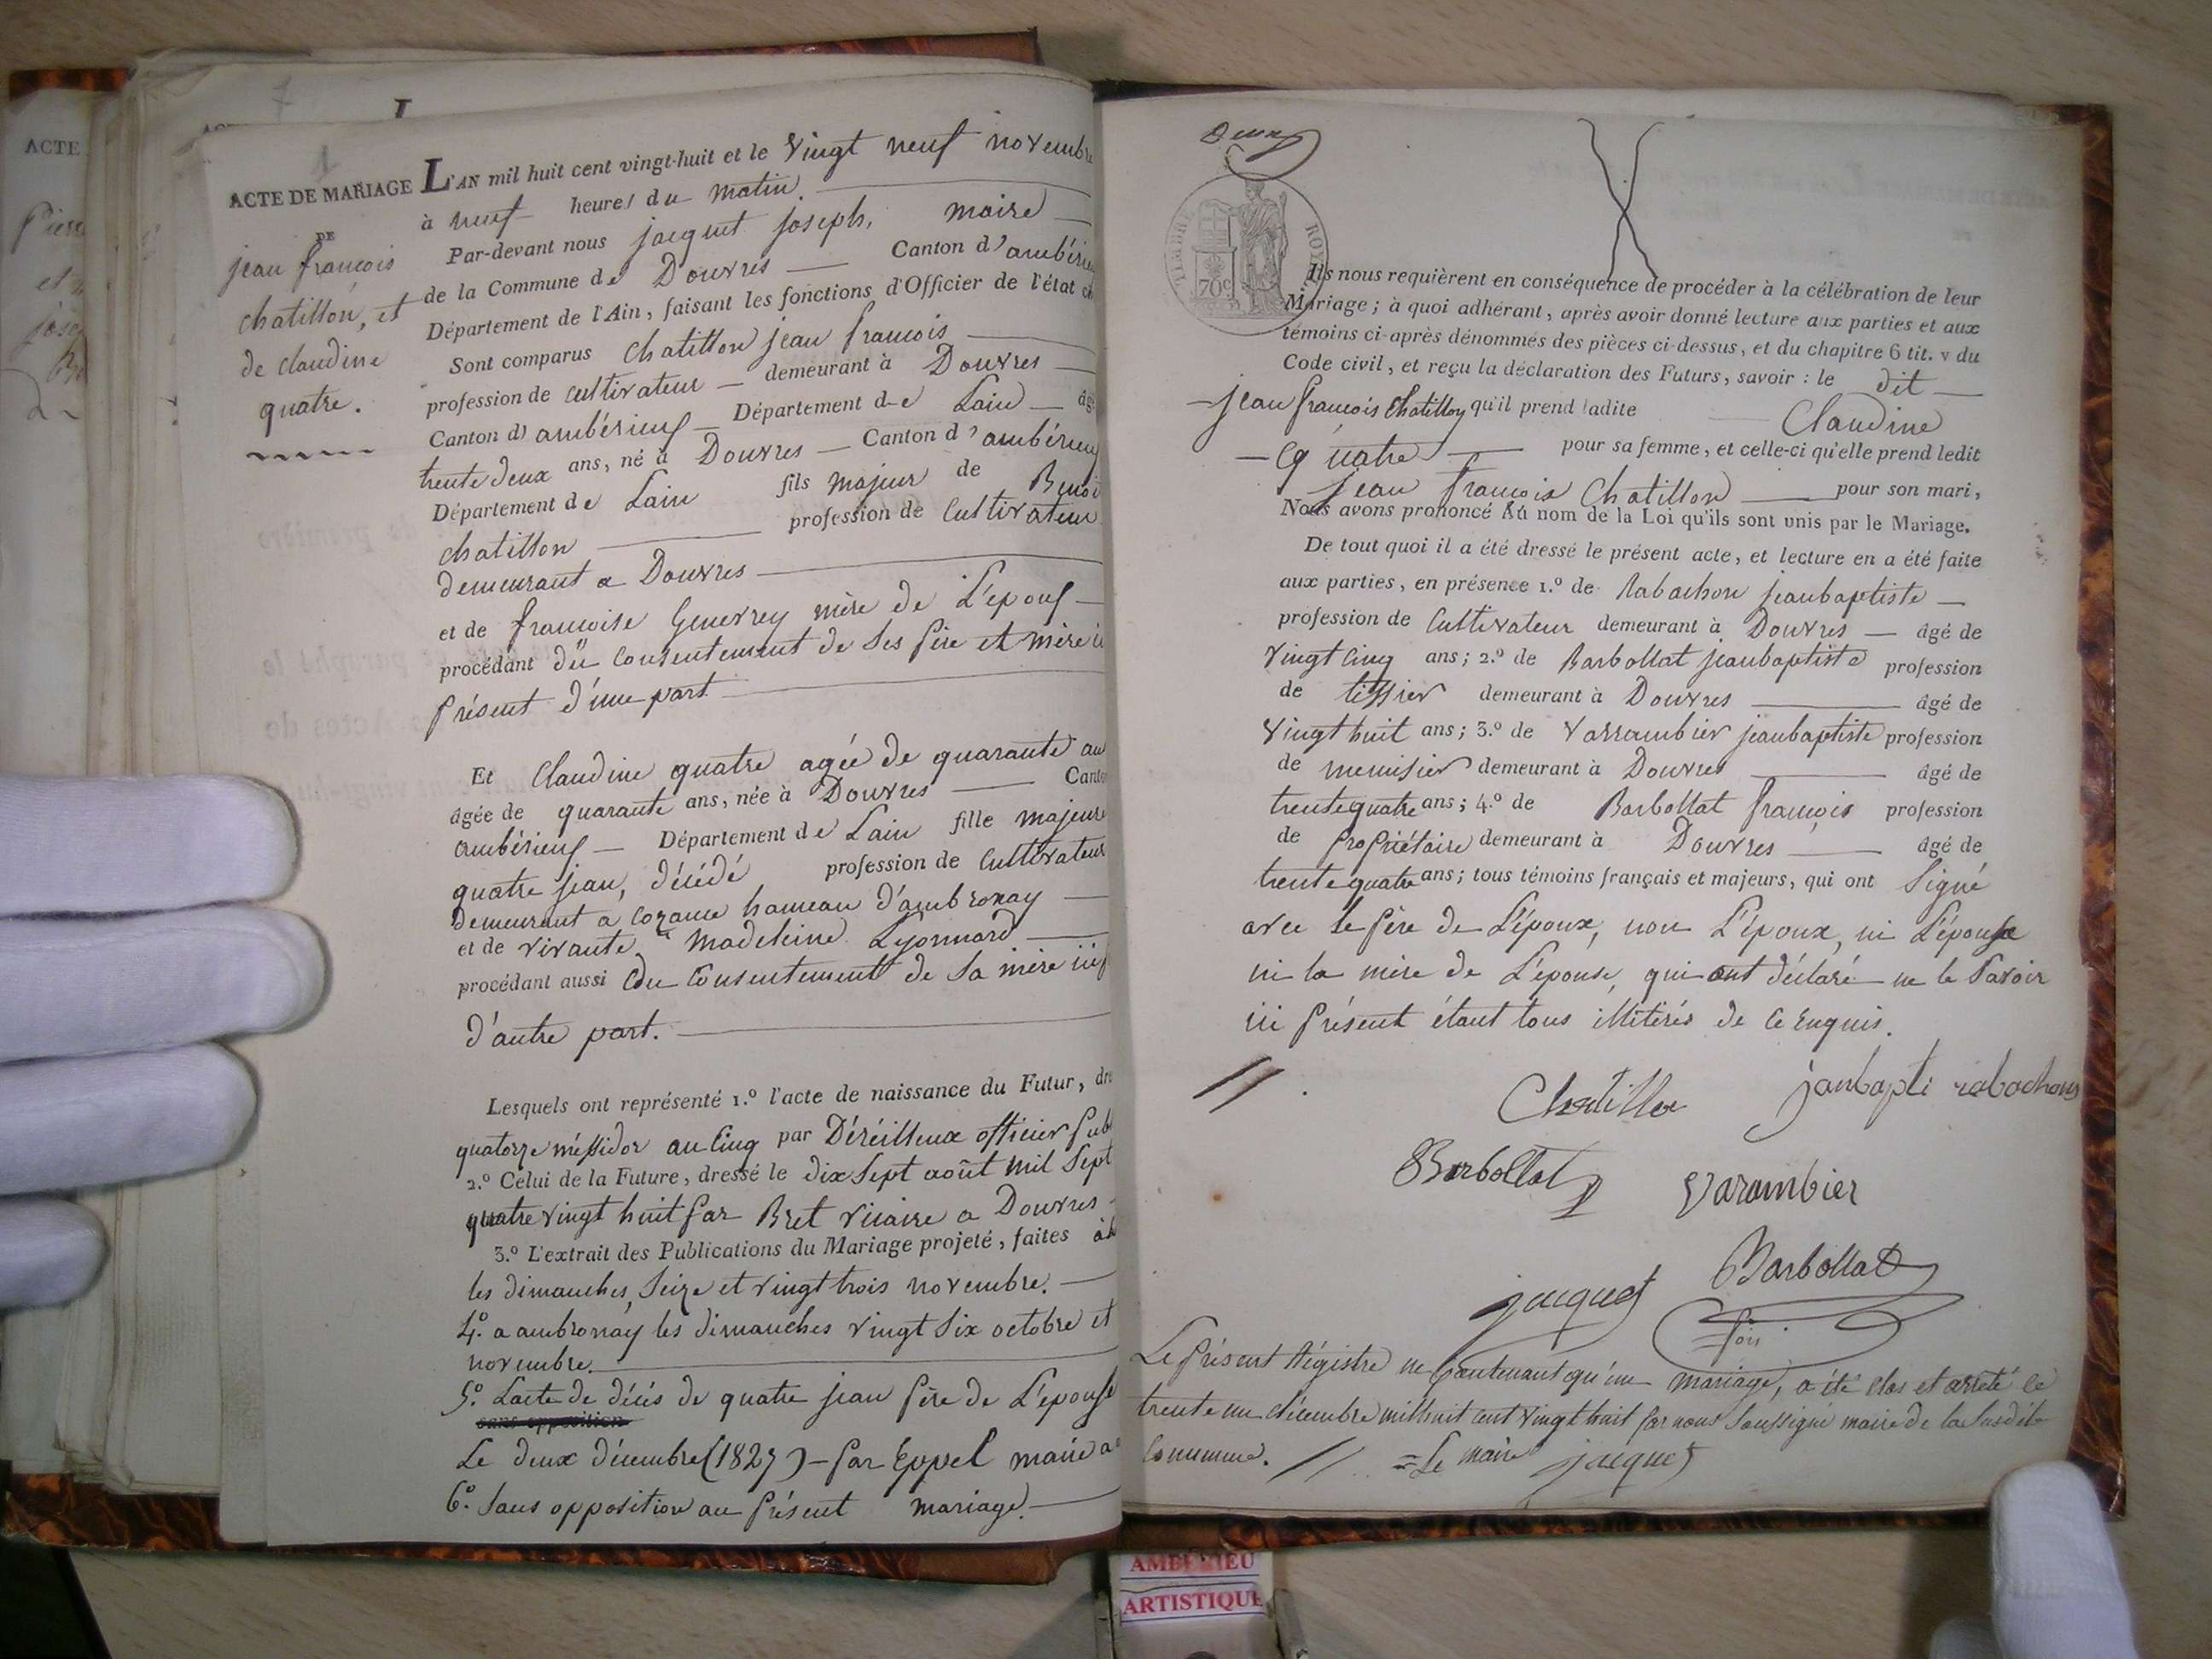 ACTE
ACTE DE MARIAGE
DE
jean françois
chatillon, et
de claudine
quatre.
L'AN mil huit cent vingt-huit et le vingt neuf novembre
à neuf heures du matin.
Par-devant nous jacquet joseph, maire
de la Commune de Douvres Canton d'ambérieu
Département de l'Ain, faisant les fonctions d'Officier de l'état
Sont comparus Chatillon jean françois
profession de cultivateur demeurant à Douvres
Canton d'ambérieuf Département de Lain
trente deux ans, né à Douvres Canton d'ambérieu
Département de Lain fils majeur de Benoi
chatillon profession de Cultivateur
demeurant a Douvres
et de françoise Genevrey mère de L'épouf
procédant du Consentement de ses père et mère
présent d'une part
Et Claudine quatre agée de quarante an
âgée de quarante ans, née à Douvres Canto
ambérieuf Département de Lain fille majeure
quatre jean, décédé profession de Cultivateur
Demeurant a Cozance hameau d'ambronay
et de vivante Madeleine Lyonnard
procédant aussi du Consentement de sa mère
d'autre part.
Lesquels ont représenté 1.º l'acte de naissance du Futur,
quatorze méssidor an Cinq par Déréilleux officier pub
2.º Celui de la Future, dressé le dix Sept août mil Sept
quatre vingt huit par Bret vicaire a Douvres
3.º L'extrait des Publications du Mariage projeté, faites
les dimanches, Seize et vingt trois novembre.
4.º a ambronay les dimanches vingt Six octobre et
novembre.
5.º Lacte de décès de quatre jean père de L'épouse
sans opposition
Le deux décembre (1827) par Eppel maire a
6.º Sans opposition au présent mariage.
Deux
TIMBRE ROY
70c
Ils nous requièrent en conséquence de procéder à la célébration de leur
Mariage ; à quoi adhérant, après avoir donné lecture aux parties et aux
témoins ci-après dénommés des pièces ci-dessus, et du chapitre 6 tit. v du
Code civil, et reçu la déclaration des Futurs, savoir : le dit
jean françois Chatillon qu'il prend ladite Claudine
quatre pour sa femme, et celle-ci qu'elle prend ledit
jean françois Chatillon pour son mari,
Nous avons prononcé au nom de la Loi qu'ils sont unis par le Mariage.
De tout quoi il a été dressé le présent acte, et lecture en a été faite
aux parties, en présence 1.º de Rabachon jeanbaptiste
profession de Cultivateur demeurant à Douvres âgé de
vingt cinq ans ; 2.º de Barbollat jeanbaptiste profession
de tissier demeurant à Douvres âgé de
vingt huit ans ; 3.º de Varrambier jeanbaptiste profession
de menuisier demeurant à Douvres âgé de
trente quatre ans ; 4.º de Barbollat françois profession
de propriétaire demeurant à Douvres âgé de
trente quatre ans ; tous témoins français et majeurs, qui ont signé
avec le père de L'époux, non L'époux, ni L'épouse
ni la mère de L'épouse, qui ont déclaré ne le Savoir
ici présent étant tous illitérés de ce Enquis.
Chatillon
janbapti rabachon
Barbollat
Varambier
jacquet
Barbollat
Le présent Régistre ne Contenant qu'un mariage, a été clos et arrêté le
trente un décembre mil huit cent vingt huit par nous Soussigné maire de la Susdite
Commune. = Le maire jacquet
AMBERIEU
ARTISTIQUE